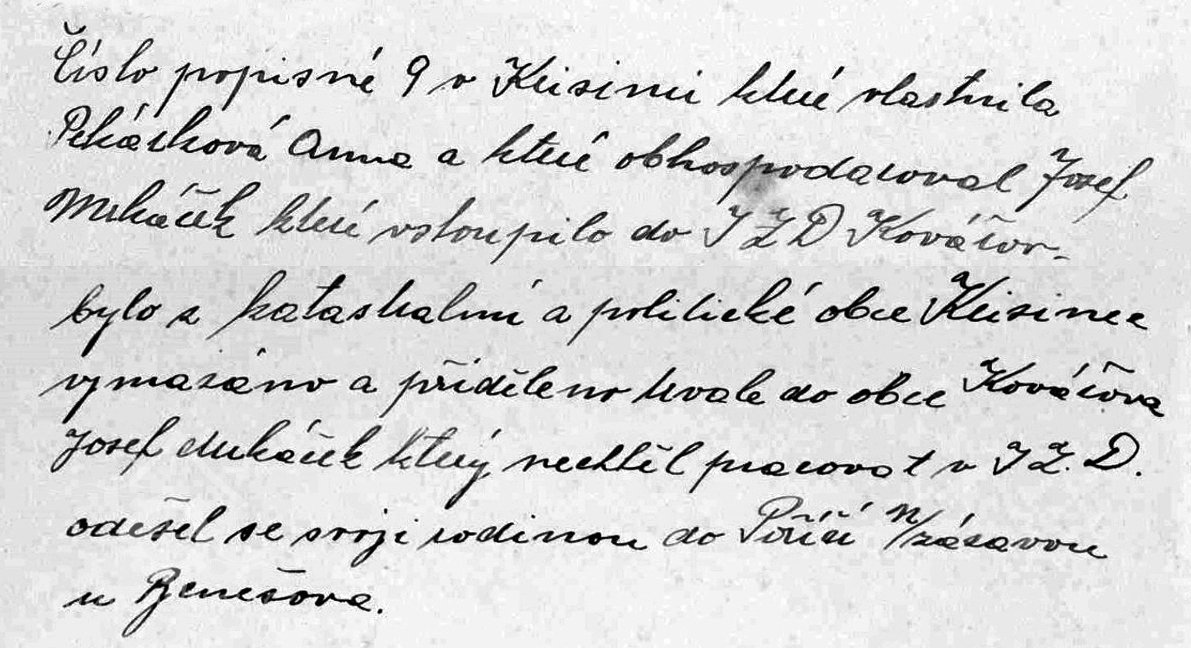 Číslo popisné 9 v Křisinci které vlastnila
Pekárková Anna a které obhospodařoval Josef
Mrkáček které vstoupilo do JZD Kovářov-
bylo z katastralní a politické obce Křisince
vymazáno a přiděleno trvale do obce Kovářova
Josef Mrkáček který nechtěl pracovat v JZ.D.
odešel se svoji rodinou do Poříčí n/zázavou
u Benešova.